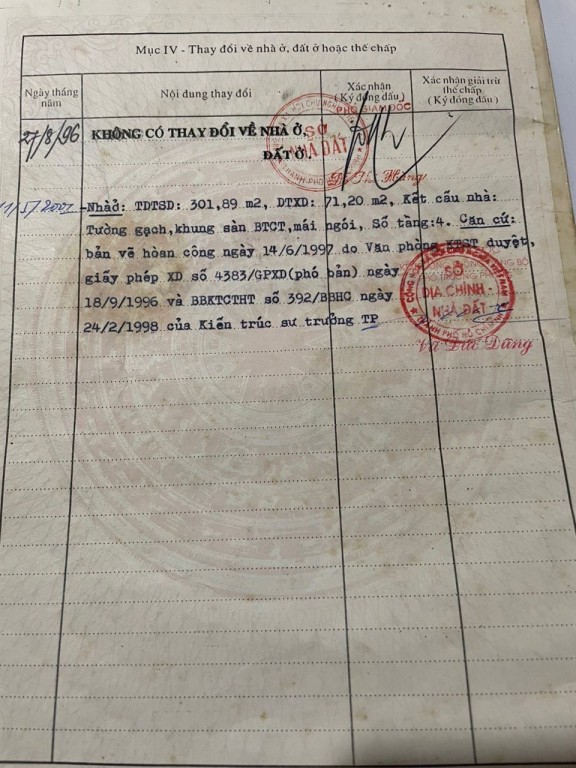 Mục IV - Thay đổi về nhà ở, đất ở hoặc thế chấp
Ngày tháng năm
Nội dung thay đổi
Xác nhận (Ký đóng dấu)
Xác nhận giải trừ thế chấp (Ký đóng dấu)
PHÓ GIÁM ĐỐC
27/8/96
KHÔNG CÓ THAY ĐỔI VỀ NHÀ Ở,
ĐẤT Ở.
SỞ
NHÀ ĐẤT
11/5/2001
-Nhàở: TDTSD: 301,89 m2, DTXD: 71,20 m2, Kết cấu nhà:
Tường gạch,khung sàn BTCT,mái ngói, Số tầng:4. Căn cứ:
bản vẽ hoàn công ngày 14/6/1997 do Văn phòng KTST duyệt,
giấy phép XD số 4383/GPXD(phó bản) ngày
18/9/1996 và BBKTCTHT số 392/BBHC ngày
24/2/1998 của Kiến trúc sư trưởng TP
SỞ
ĐỊA CHÍNH -
NHÀ ĐẤT
THÀNH PHỐ HỒ CHÍ MINH